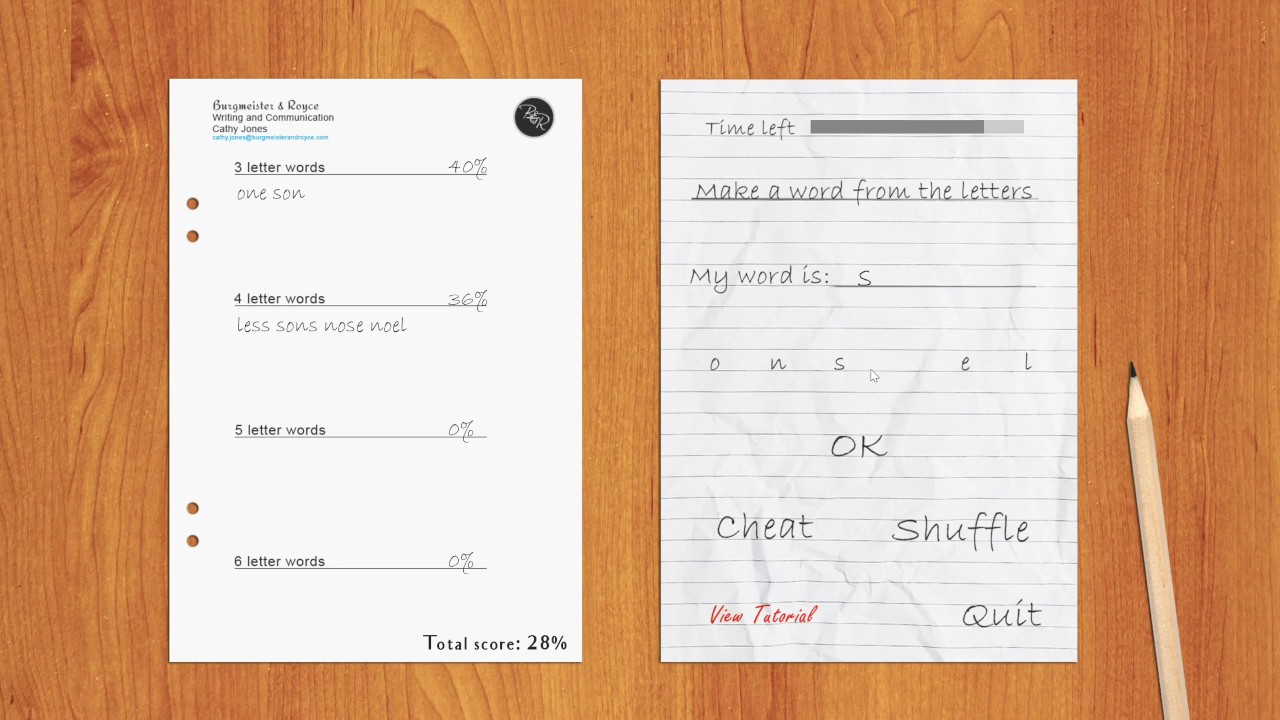 Burgmeister & Royce
Writing and Communication
Cathy Jones
cathy.jones@burgmeisterandroyce.com
B&R
3 letter words 40%
one son
4 letter words 36%
less sons nose noel
5 letter words 0%
6 letter words 0%
Total score: 28%
Time left
Make a word from the letters
My word is: s
o n s e l
OK
Cheat Shuffle
View Tutorial Quit